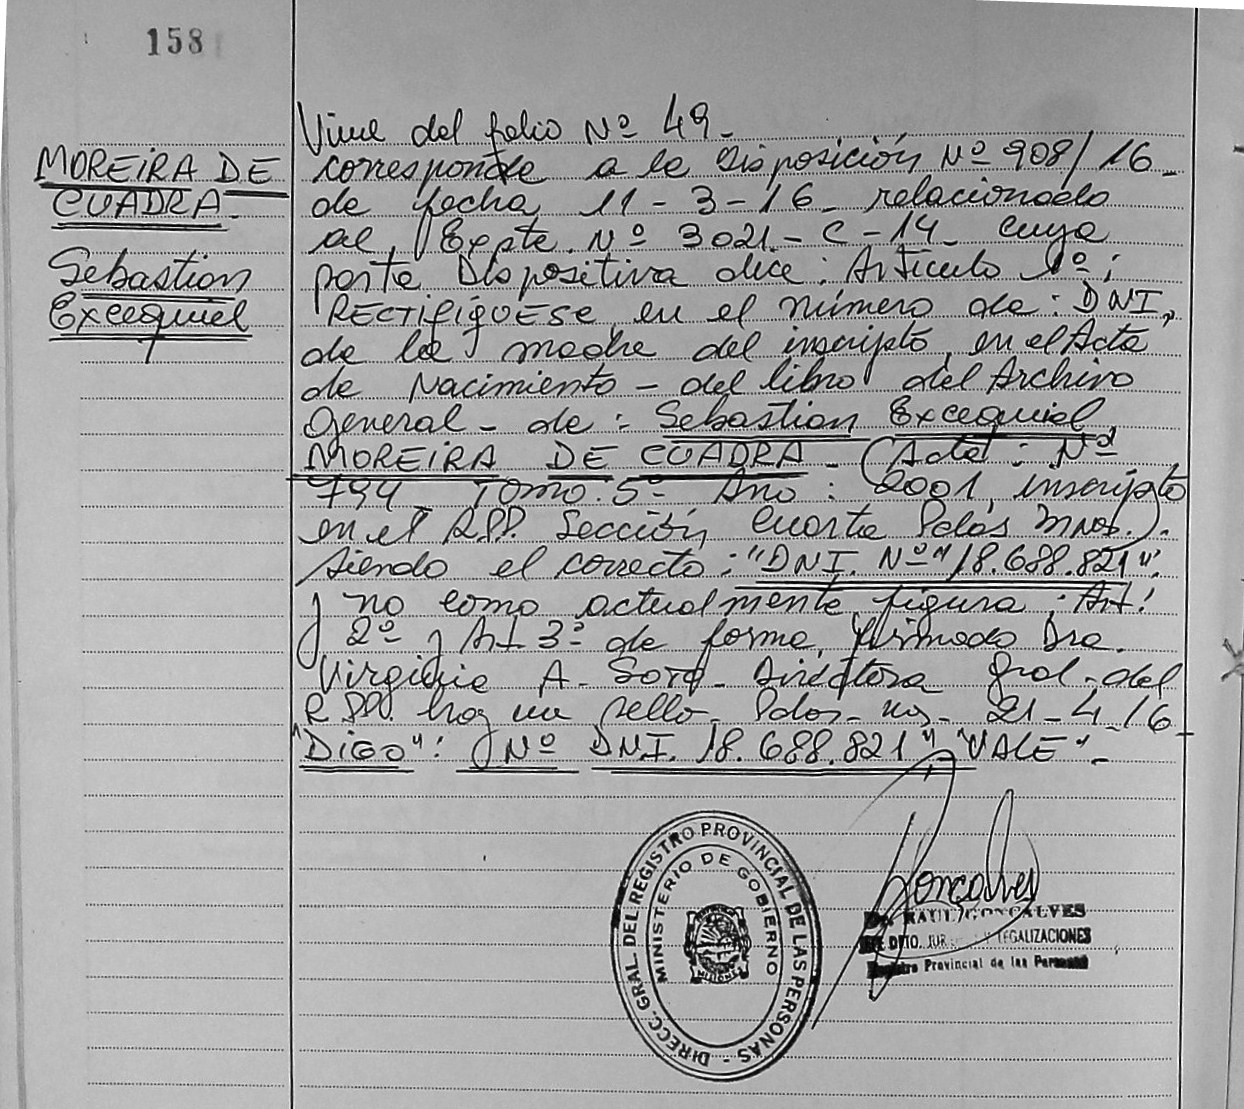 158
MOREIRA DE
CUADRA.
Sebastian
Excequiel
Viene del folio Nº 49.
corresponde a la Disposición Nº 908/16.
de fecha, 11-3-16. relacionado
al, Expte. Nº 3021.- C-14. cuya
parte Dispositiva dice: Artículo 1º:
RECTIFIQUESE, en el número de: DNI,
de la madre del inscripto, en el Acta
de Nacimiento - del libro del Archivo
General - de: Sebastian Excequiel
MOREIRA DE CUADRA. (Acta: Nº
794 Tomo. 5º Año: 2001, inscripto
en el RPP. Sección Cuarta Pdas Mnes.).
siendo el correcto: "DNI. Nº" 18.688.821".
y no como actualmente, figura; Art:
2º y Art 3º de forma, firmado Dra.
Virginia A. Soto - Directora Gral. del
RPP. hay un sello. Pdas - Mnes - 21-4-16
"DIGO": Nº DNI. 18.688.821" "VALE".-
DIRECC. GRAL. DEL REGISTRO PROVINCIAL DE LAS PERSONAS -
MINISTERIO DE GOBIERNO
MISIONES
Goncalves
Dr. RAUL GONCALVES
DPTO. JUR Y LEGALIZACIONES
Registro Provincial de las Personas